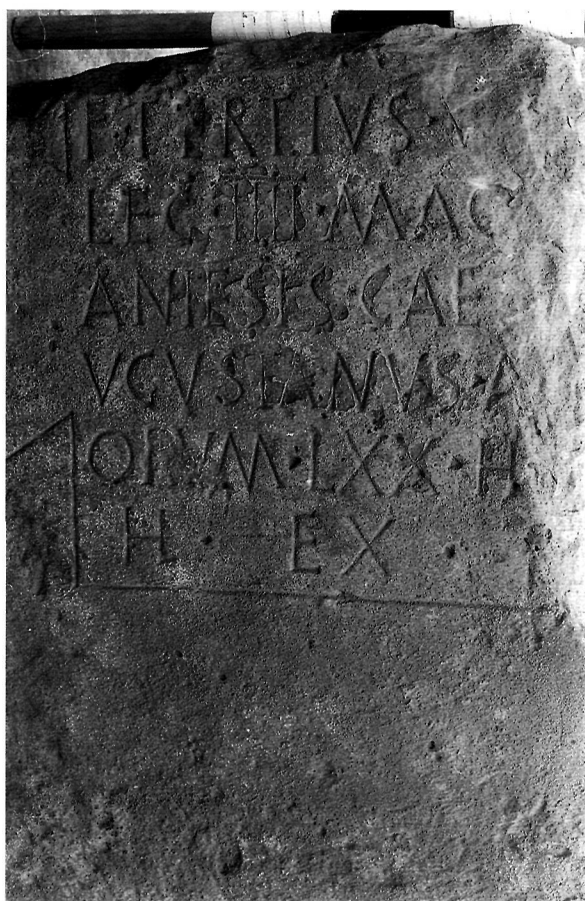 TERTIUS · V
LEG · IIII · MAC
ANIESIS · CAE
VGVSTANVS · A
ORVM · LXX · H
H · EX ·